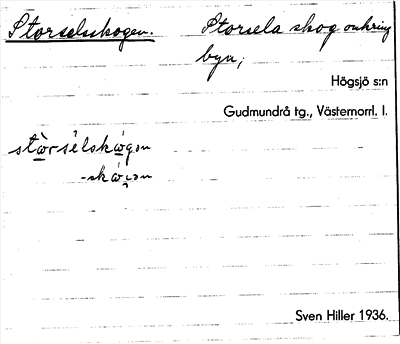 Storselsskogen. Storsela skog omkring
byn;
Högsjö s:n
Gudmundrå tg., Västernorrl. l.
stòrsèlskógən
-skógən
Sven Hiller 1936.